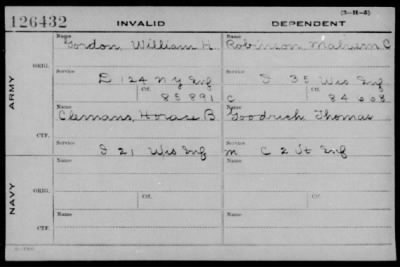 (3-H-5)
126432 INVALID DEPENDENT
Name Name
Gordon, William H. Robinson C.
ARMY ORIG.
Service Service
D 124 N Y Inf D 35 Wis Inf
Ctf. Ctf.
85891 C 84
Name Name
Clemans, Horace B. Goodrich Thomas
CTF.
Service Service
D 21 Wis Inf m C 2 Inf
Name Name
NAVY ORIG.
Service Ctf. Service Ctf.
Name Name
CTF.